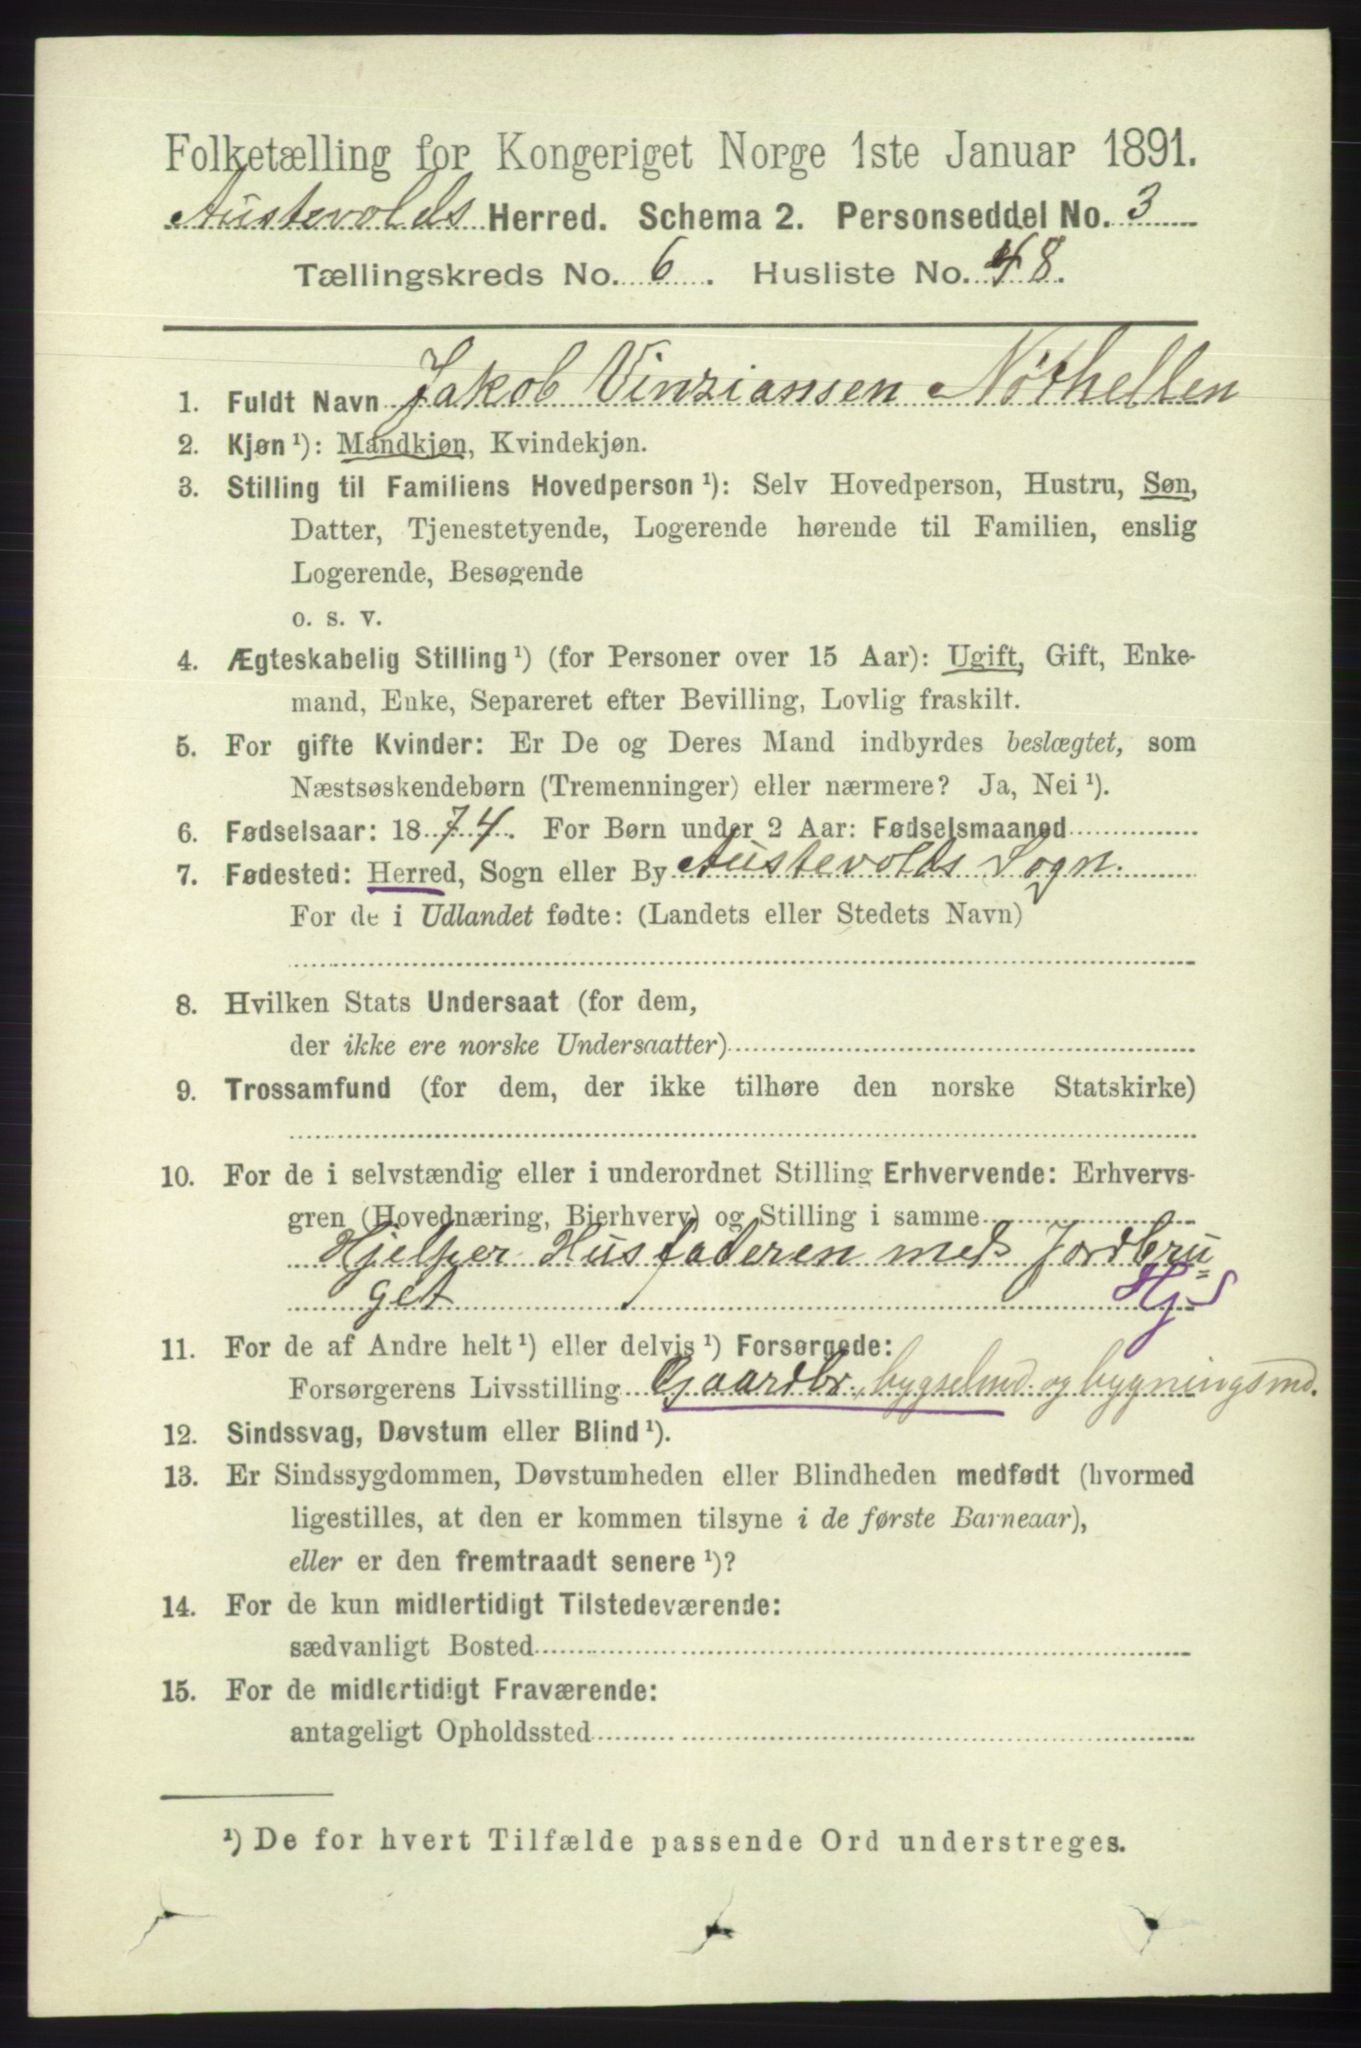 Folketælling for Kongeriget Norge 1ste Januar 1891.
Austevolds Herred. Schema 2. Personseddel No. 3
Tællingskreds No. 6. Husliste No. 48.
1. Fuldt Navn Jakob Vinziansen Nøthellen
2. Kjøn ¹): Mandkjøn, Kvindekjøn.
3. Stilling til Familiens Hovedperson ¹): Selv Hovedperson, Hustru, Søn,
Datter, Tjenestetyende, Logerende hørende til Familien, enslig
Logerende, Besøgende
o. s. v.
4. Ægteskabelig Stilling ¹) (for Personer over 15 Aar): Ugift, Gift, Enke-
mand, Enke, Separeret efter Bevilling, Lovlig fraskilt.
5. For gifte Kvinder: Er De og Deres Mand indbyrdes beslægtet, som
Næstsøskendebørn (Tremenninger) eller nærmere? Ja, Nei ¹).
6. Fødselsaar: 1874. For Børn under 2 Aar: Fødselsmaaned
7. Fødested: Herred, Sogn eller By Austevolds Sogn.
For de i Udlandet fødte: (Landets eller Stedets Navn)
8. Hvilken Stats Undersaat (for dem,
der ikke ere norske Undersaatter)
9. Trossamfund (for dem, der ikke tilhøre den norske Statskirke)
10. For de i selvstændig eller i underordnet Stilling Erhvervende: Erhvervs-
gren (Hovednæring, Bierhverv) og Stilling i samme
Hjelper Husfaderen med Jordbru=
get HjS
11. For de af Andre helt ¹) eller delvis ¹) Forsørgede:
Forsørgerens Livsstilling Gaardbr., bygselmd. og bygningsmd.
12. Sindssvag, Døvstum eller Blind ¹).
13. Er Sindssygdommen, Døvstumheden eller Blindheden medfødt (hvormed
ligestilles, at den er kommen tilsyne i de første Barneaar),
eller er den fremtraadt senere ¹)?
14. For de kun midlertidigt Tilstedeværende:
sædvanligt Bosted
15. For de midlertidigt Fraværende:
antageligt Opholdssted
¹) De for hvert Tilfælde passende Ord understreges.